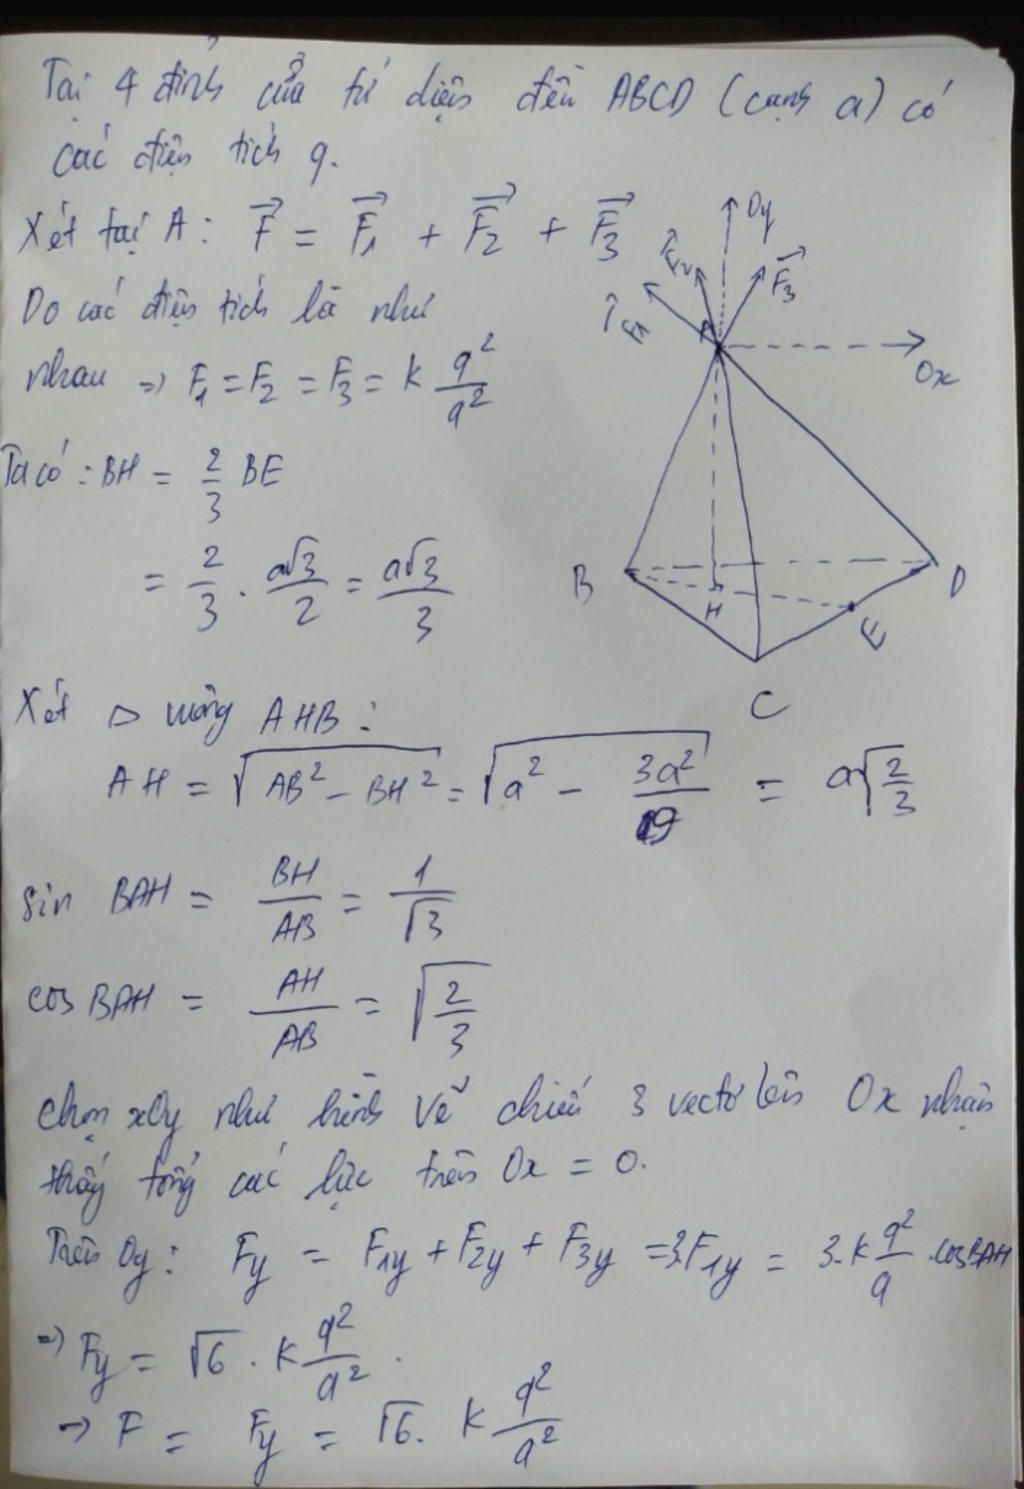 Tại 4 đỉnh của tứ diện đều ABCD (cạnh a) có
các điện tích q.
Xét tại A: F⃗ = F⃗₁ + F⃗₂ + F⃗₃
Do các điện tích là như
nhau => F₁ = F₂ = F₃ = k q²/a²
Ta có: BH = 2/3 BE
= 2/3 . a√3/2 = a√3/3
Xét △ vuông AHB:
AH = √(AB² - BH²) = √(a² - 3a²/9) = a√(2/3)
sin BAH = BH/AB = 1/√3
cos BAH = AH/AB = √(2/3)
Chọn xOy như hình vẽ chiếu 3 vectơ lên Ox nhận
thấy tổng các lực trên Ox = 0.
Trên Oy: Fy = F₁y + F₂y + F₃y = 3F₁y = 3.k q²/a .cosBAH
=> Fy = √6 . k q²/a².
-> F = Fy = √6. k q²/a²
Oy
F⃗₂
F⃗₃
F⃗₁
A
Ox
B
H
D
E
C